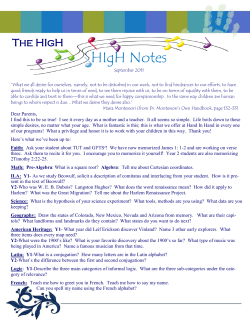 THE HIGH
HIgH Notes
September 2011
"What we all desire for ourselves, namely, not to be disturbed in our work, not to find hindrances to our efforts, to have
good friends ready to help us in times of need, to see them rejoice with us, to be on terms of equality with them, to be
able to confide and trust in them—this is what we need for happy companionship. In the same way children are human
beings to whom respect is due... What we desire they desire also."
Maria Montessori (from Dr. Montessori's Own Handbook, page 132-133)
Dear Parents,
I find this to be so true! I see it every day as a mother and a teacher. It all seems so simple. Life boils down to these
simple desires, no matter what your age. What is fantastic is this; this is what we offer at Hand In Hand in every one
of our programs! What a privilege and honor it is to work with your children in this way. Thank you!
Here's what we've been up to:
Faith: Ask your student about TUT and GPTS? We have now memorized James 1: 1-2 and are working on verse
three. Ask them to recite it for you. I encourage you to memorize it yourself! Year 2 students are also memorizing
2Timothy 2:22-25.
Math: Pre-Algebra: What is a square root? Algebra: Tell me about Cartesian coordinates.
ILA: Y1- As we study Beowulf, solicit a description of comitatus and interlacing from your student. How is it pre-
sent in the text of Beowulf?
Y2-Who was W. E. B. Dubois? Langston Hughes? What does the word renaissance mean? How did it apply to
Harlem? What was the Great Migration? Tell me about the Harlem Renaissance Project.
Science: What is the hypothesis of your science experiment? What tools, methods are you using? What data are you
keeping?
Geography: Draw the states of Colorado, New Mexico, Nevada and Arizona from memory. What are their capi-
tals? What landforms and landmarks do they contain? What states do you want to do next?
American Heritage: Y1- What year did Leif Erickson discover Vinland? Name 3 other early explorers. What
three items does every map need?
Y2-What were the 1900's like? What is your favorite discovery about the 1900's so far? What type of music was
being played in America? Name a famous musician from that time.
Latin: Y1-What is a conjugation? How many letters are in the Latin alphabet?
Y2-What's the difference between the first and second conjugations?
Logic: Y1-Describe the three main categories of informal logic. What are the three sub-categories under the cate-
gory of relevance?
French: Teach me how to greet you in French. Teach me how to say my name.
Can you spell my name using the French alphabet?